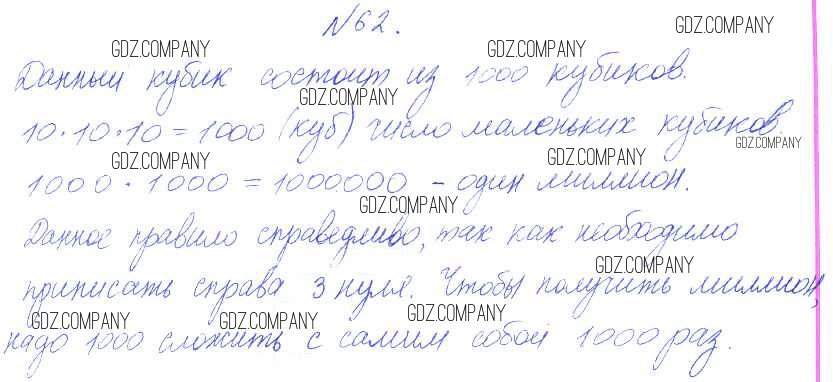 №62.
GDZ.COMPANY
GDZ.COMPANY GDZ.COMPANY
Данный кубик состоит из 1000 кубиков.
GDZ.COMPANY
10·10·10=1000 (куб) число маленьких кубиков.
GDZ.COMPANY
GDZ.COMPANY GDZ.COMPANY
1000·1000=1000000 – один миллион.
GDZ.COMPANY
Данное правило справедливо, так как необходимо
GDZ.COMPANY
приписать справа 3 нуля. Чтобы получить миллион,
GDZ.COMPANY GDZ.COMPANY GDZ.COMPANY
надо 1000 сложить с самим собой 1000 раз.